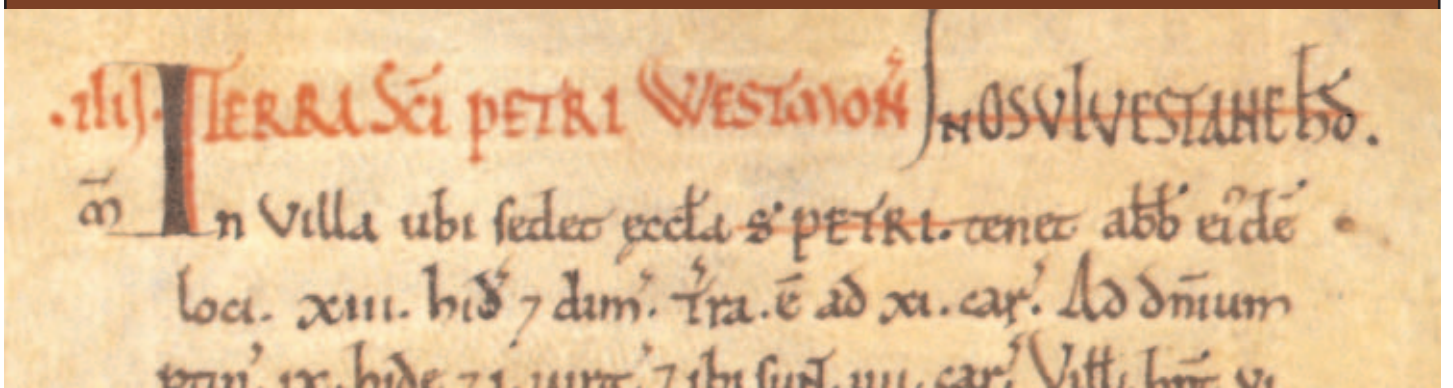 .iiij. TERRA S̄CI PETRI WESTMON̄ IN OSVLVESTANE h̄D.
M̄ In Villa ubi sedet eccl̄a S' PETRI. tenet abb̄ ei'dē
loci. xiii. hid' ⁊ dim'. T'ra. ē ad xi. car'. Ad dn̄ium
ptin'. ix. hidę ⁊ i. uirg'. ⁊ ibi suń. iiii. car'. Vill̄i hn̄t vi